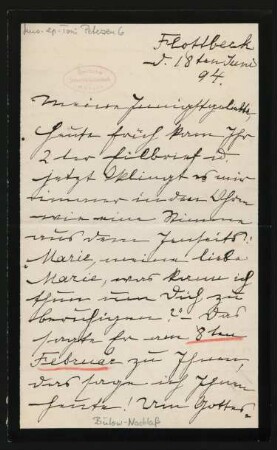 Mus. ep. Toni Petersen 6
Flottbeck
d. 18ten Juni
94.
Meine Innigstgeliebte,
heute früh kam Ihr
2ter Eilbrief u.
jetzt klingt es mir
immer in den Ohren
wie eine Stimme
aus dem Jenseits:
Marie, meine liebe
Marie, was kann ich
thun um Dich zu
beruhigen? – Das
sagte Er am 8ten
Februar zu Ihnen,
das sage ich Ihnen
heute! Um Gottes-
Bülow-Nachlaß